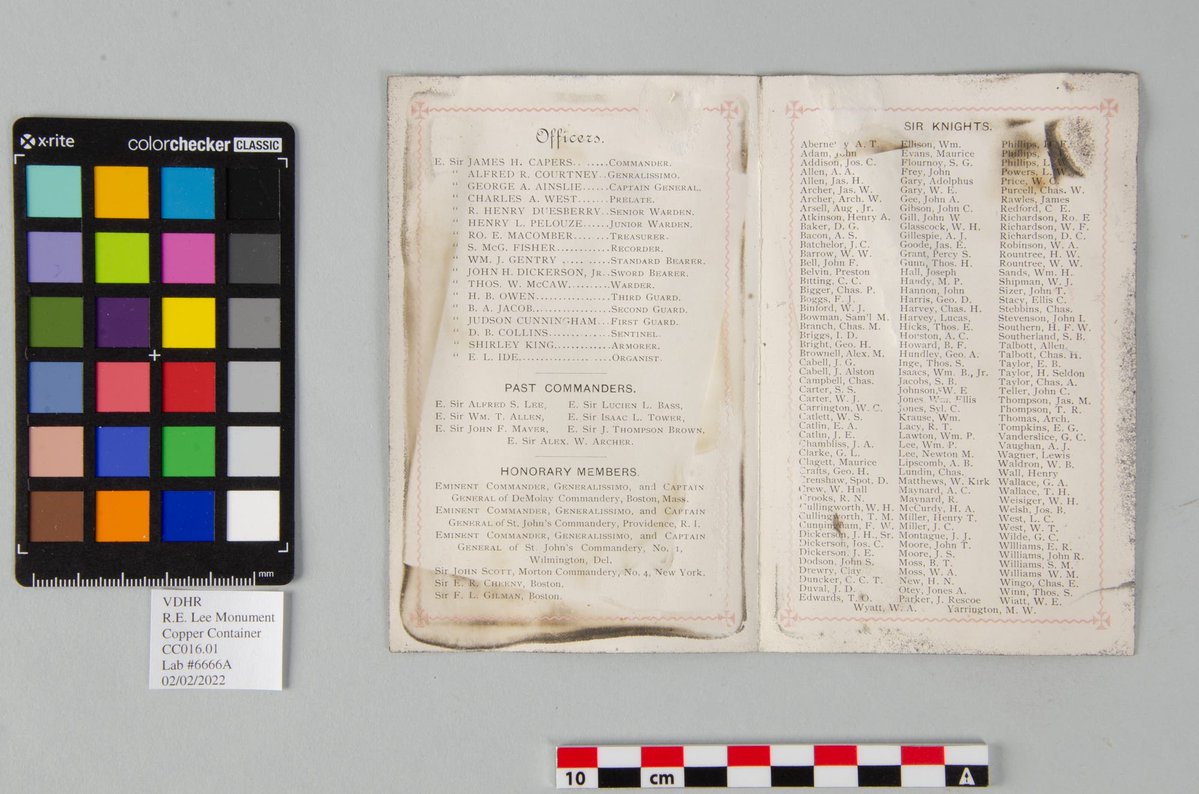 x·rite
colorchecker CLASSIC
mm
VDHR
R.E. Lee Monument
Copper Container
CC016.01
Lab #6666A
02/02/2022
Officers.
E. Sir JAMES H. CAPERS.. ......COMMANDER.
" ALFRED R. COURTNEY..GENRALISSIMO.
" GEORGE A. AINSLIE......CAPTAIN GENERAL.
" CHARLES A. WEST.......PRELATE.
" R. HENRY DUESBERRY..SENIOR WARDEN.
" HENRY L. PELOUZE......JUNIOR WARDEN.
" RO. E. MACOMBER.......TREASURER.
" S. McG. FISHER............RECORDER.
" WM. J. GENTRY ..... ......STANDARD BEARER.
" JOHN H. DICKERSON, JR..SWORD BEARER.
" THOS. W. McCAW.........WARDER.
" H. B. OWEN................THIRD GUARD.
" B. A. JACOB................SECOND GUARD.
" JUDSON CUNNINGHAM...FIRST GUARD.
" D. B. COLLINS.............SENTINEL.
" SHIRLEY KING.............ARMORER.
" E. L. IDE....................ORGANIST.
PAST COMMANDERS.
E. SIR ALFRED S. LEE, E. SIR LUCIEN L. BASS,
E. SIR WM. T. ALLEN, E. SIR ISAAC L. TOWER,
E. SIR JOHN F. MAYER, E. SIR J. THOMPSON BROWN,
E. SIR ALEX. W. ARCHER.
HONORARY MEMBERS.
EMINENT COMMANDER, GENERALISSIMO, and CAPTAIN
GENERAL of DEMOLAY COMMANDERY, BOSTON, MASS.
EMINENT COMMANDER, GENERALISSIMO, and CAPTAIN
GENERAL of ST. JOHN'S COMMANDERY, PROVIDENCE, R. I.
EMINENT COMMANDER, GENERALISSIMO, and CAPTAIN
GENERAL of ST. JOHN'S COMMANDERY, NO. 1,
WILMINGTON, DEL.
SIR JOHN SCOTT, MORTON COMMANDERY, NO. 4, NEW YORK.
SIR E. R. CHEENY, BOSTON.
SIR F. L. GILMAN, BOSTON.
SIR KNIGHTS.
A. T.
Adam, John
Addison, Jos. C.
Allen, A. A.
Allen, Jas. H.
Archer, Jas. W.
Archer, Arch. W.
Arsell, Aug., Jr.
Atkinson, Henry A.
Baker, D. G.
Bacon, A. S.
Batchelor, J. C.
Barrow, W. W.
Bell, John F.
Belvin, Preston
Bitting, C. C.
Bigger, Chas. P.
Boggs, F. J.
Binford, W. J.
Bowman, Sam'l M.
Branch, Chas. M.
Briggs, I. D.
Bright, Geo. H.
Brownell, Alex. M.
Cabell, J. G.
Cabell, J. Alston
Campbell, Chas.
Carter, S. S.
Carter, W. J.
Carrington, W. C.
Catlett, W. S.
Catlin, E. A.
Catlin, J. E.
Chambliss, J. A.
Clarke, G. L.
Clagett, Maurice
Crafts, Geo. H.
Crenshaw, Spot. D.
Crew, W. Hall
Crooks, R. N.
Cullingworth, W. H.
Cullingworth, T. M.
Cunningham, F. W.
Dickerson, J. H., Sr.
Dickerson, Jos. C.
Dickerson, J. E.
Dodson, John S.
Drewry, Clay
Duncker, C. C. T.
Duval, J. D.
Edwards, T. O.
Ellison, Wm.
Evans, Maurice
Flournoy, S. G.
Frey, John
Gary, Adolphus
Gary, W. E.
Gee, John A.
Gibson, John C.
Gill, John W.
Glasscock, W. H.
Gillespie, A. J.
Goode, Jas. E.
Grant, Percy S.
Gunn, Thos. H.
Hall, Joseph
Handy, M. P.
Hannon, John
Harris, Geo. D.
Harvey, Chas. H.
Harvey, Lucas,
Hicks, Thos. E.
Houston, A. C.
Howard, B. F.
Hundley, Geo. A.
Inge, Thos. S.
Isaacs, Wm. B., Jr.
Jacobs, S. B.
Johnson, W. E.
Jones, Wm. Ellis
Jones, Syl. C.
Krause, Wm.
Lacy, R. T.
Lawton, Wm. P.
Lee, Wm. P.
Lee, Newton M.
Lipscomb, A. B.
Lundin, Chas.
Matthews, W. Kirk
Maynard, A. C.
Maynard, R.
McCurdy, H. A.
Miller, Henry T.
Miller, J. C.
Montague, J. J.
Moore, John T.
Moore, J. S.
Moss, B. T.
Moss, W. A.
New, H. N.
Otey, Jones A.
Parker, J. Rescoe
Phillips,
Phillips,
Phillips, L.
Powers, L. W.
Price, W. G.
Purcell, Chas. W.
Rawles, James
Redford, C. E.
Richardson, Ro. E
Richardson, W. F.
Richardson, D. C.
Robinson, W. A.
Rountree, H. W.
Rountree, W. W.
Sands, Wm. H.
Shipman, W. J.
Sizer, John T.
Stacy, Ellis C.
Stebbins, Chas.
Stevenson, John I.
Southern, H. F. W.
Southerland, S. B.
Talbott, Allen,
Talbott, Chas. H.
Taylor, E. B.
Taylor, H. Seldon
Taylor, Chas, A.
Teller, John C.
Thompson, Jas. M.
Thompson, T. R.
Thomas, Arch.
Tompkins, E. G.
Vanderslice, G. C.
Vaughan, A. J.
Wagner, Lewis
Waldron, W. B.
Wall, Henry
Wallace, G. A.
Wallace, T. H.
Weisiger, W. H.
Welsh, Jos. B.
West, L. C.
West, W. T.
Wilde, G. C.
Williams, E. R.
Williams, John R.
Williams, S. M.
Williams W. M.
Wingo, Chas. E.
Winn, Thos. S.
Wiatt, W. E.
Wyatt, W. A. Yarrington, M. W.
10 cm